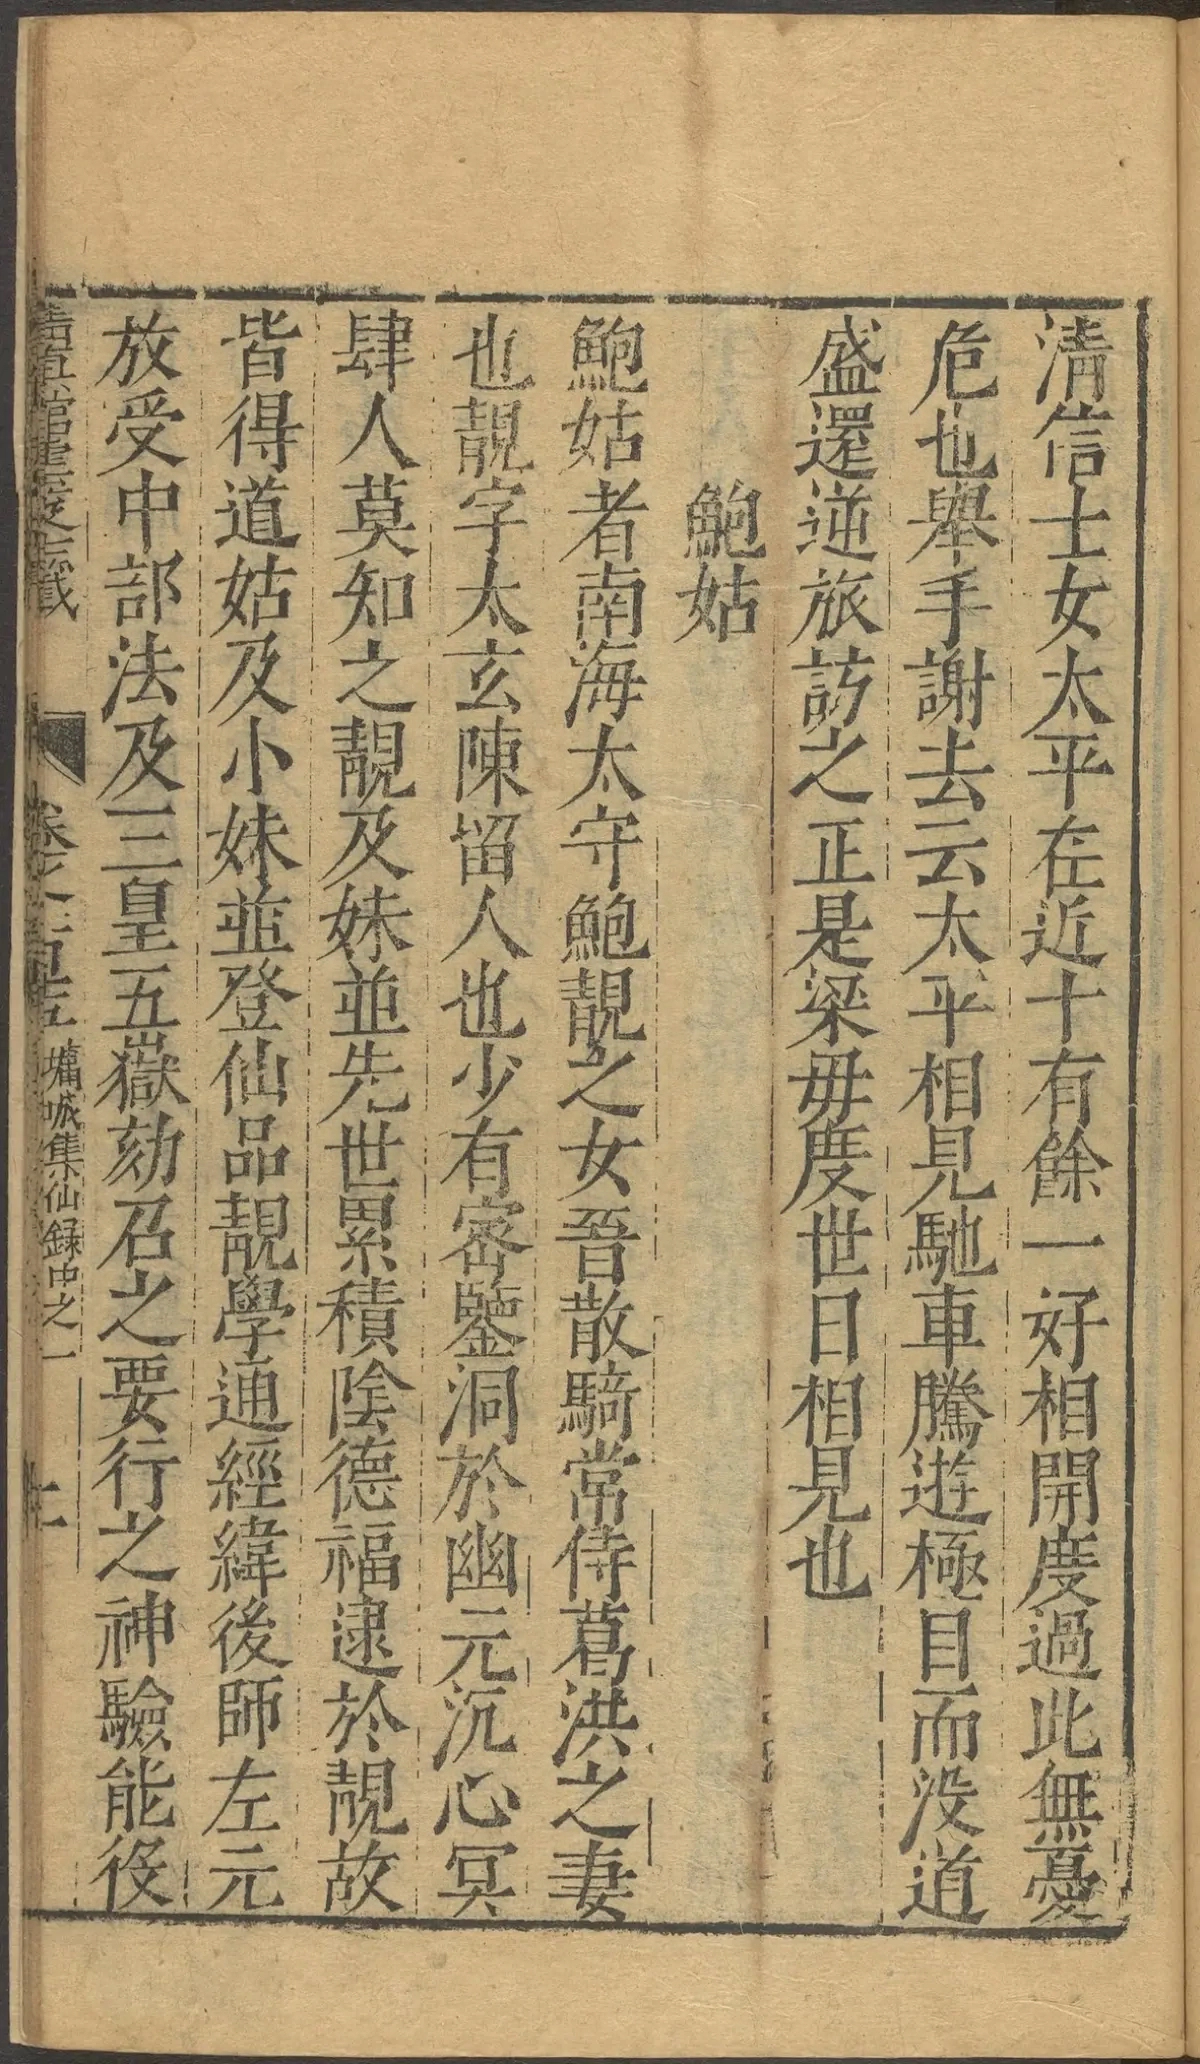 清信士女太平在近十有餘一好相開度過此無憂
危也舉手謝去云太平相見馳車騰遊極目而没道
盛還逆旅訪之正是梁毋度世日相見也
鮑姑
鮑姑者南海太守鮑靚之女晉散騎常侍葛洪之妻
也靚字太玄陳留人也少有密鑒洞於幽元沉心冥
肆人莫知之靚及妹並先世累積陰德福逮於靚故
皆得道姑及小妹並登仙品靚學通經緯後師左元
放受中部法及三皇五嶽劾召之要行之神驗能役
墉城集仙録中之一